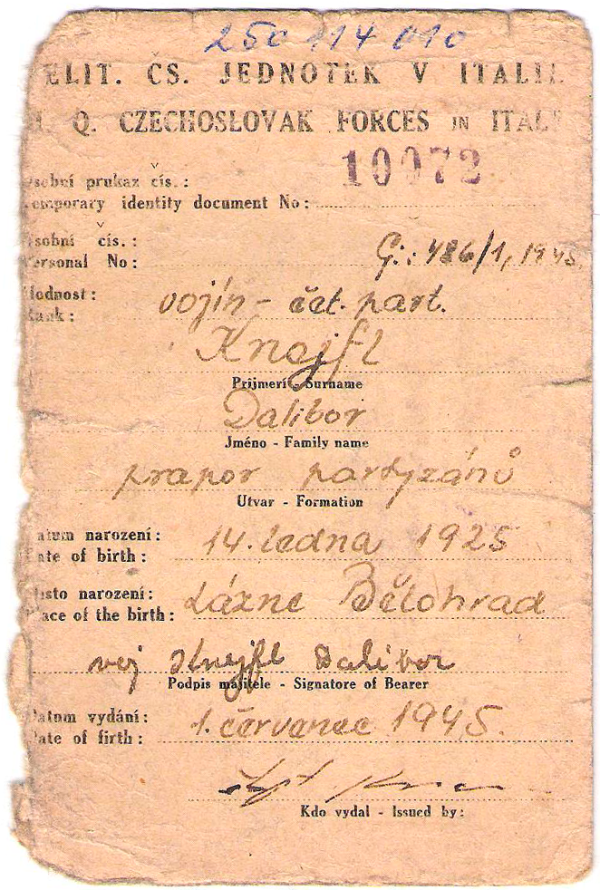 250 114 010
ELIT. ČS. JEDNOTEK V ITALII
Q. CZECHOSLOVAK FORCES IN ITAL
10072
sobní průkaz čís.:
emporary identity document No:
sobní čís.:
ersonal No:
Č.: 486/1, 1945.
Hodnost:
Rank:
vojín - čet. part.
Knejfl
Prijmeri - Surname
Dalibor
Jméno - Family name
prapor partyzánů
Utvar - Formation
atum narození:
ate of birth:
14. ledna 1925
ísto narození:
lace of the birth:
Lázne Bělohrad
voj Knejfl Dalibor
Podpis majitele - Signatore of Bearer
atum vydání:
ate of firth:
1. červenec 1945.
Kdo vydal - Issued by: